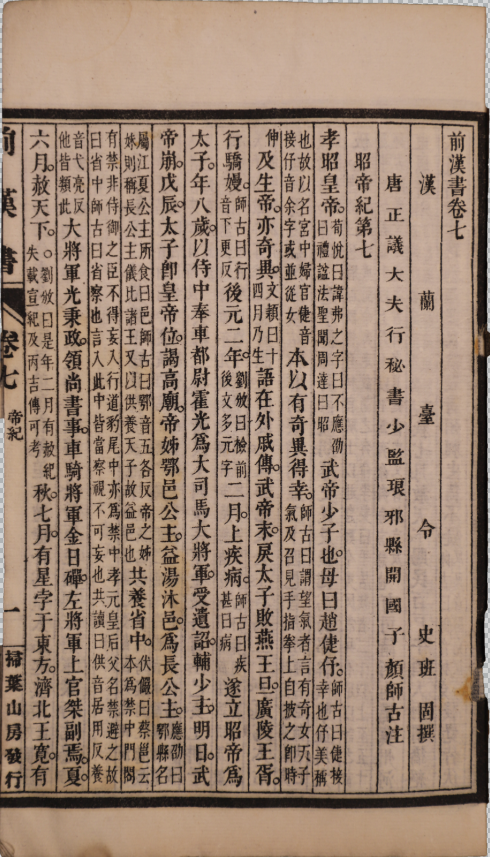 前漢書卷七
漢蘭臺令史班固撰
唐正議大夫行秘書少監琅邪縣開國子顏師古注
昭帝紀第七
孝昭皇帝。荀悅曰諱弗之字曰不應劭曰禮諡法聖聞周達曰昭武帝少子也。母曰趙倢伃。師古曰倢接幸也伃美稱
也故以名宮中婦官倢音接伃音余字或並從女本以有奇異得幸。師古曰謂望氣者言有奇女天子氣及召見手指拳上自披之卽時
伸及生帝。亦奇異。文穎曰十四月乃生語在外戚傳。武帝末。戾太子敗。燕王旦。廣陵王胥。
行驕嫚。師古曰行音下更反後元二年。劉攽曰檢前後文多元字二月。上疾病。師古曰疾甚曰病遂立昭帝爲
太子。年八歲。以侍中奉車都尉霍光爲大司馬大將軍。受遺詔。輔少主。明日。武
帝崩。戊辰。太子卽皇帝位。謁高廟。帝姊鄂邑公主。益湯沐邑。爲長公主。應劭曰鄂縣名
屬江夏公主所食曰邑師古曰鄂音五各反帝之姊妹則稱長公主儀比諸王又以供養天子故益邑也共養省中。伏儼曰蔡邕云本爲禁中門閤
有禁非侍御之臣不得妄入行道豹尾中亦爲禁中孝元皇后父名禁避之故曰省中師古曰省察也言入此中皆當察視不可妄也共讀曰供音居用反養
音弋亮反他皆類此大將軍光秉政。領尚書事。車騎將軍金日磾。左將軍上官桀副焉。夏。
六月。赦天下。○劉攽曰是年二月有赦紀失載宣紀及丙吉傳可考秋七月。有星孛于東方。濟北王寬。有
前漢書 卷七 帝紀 一 掃葉山房發行